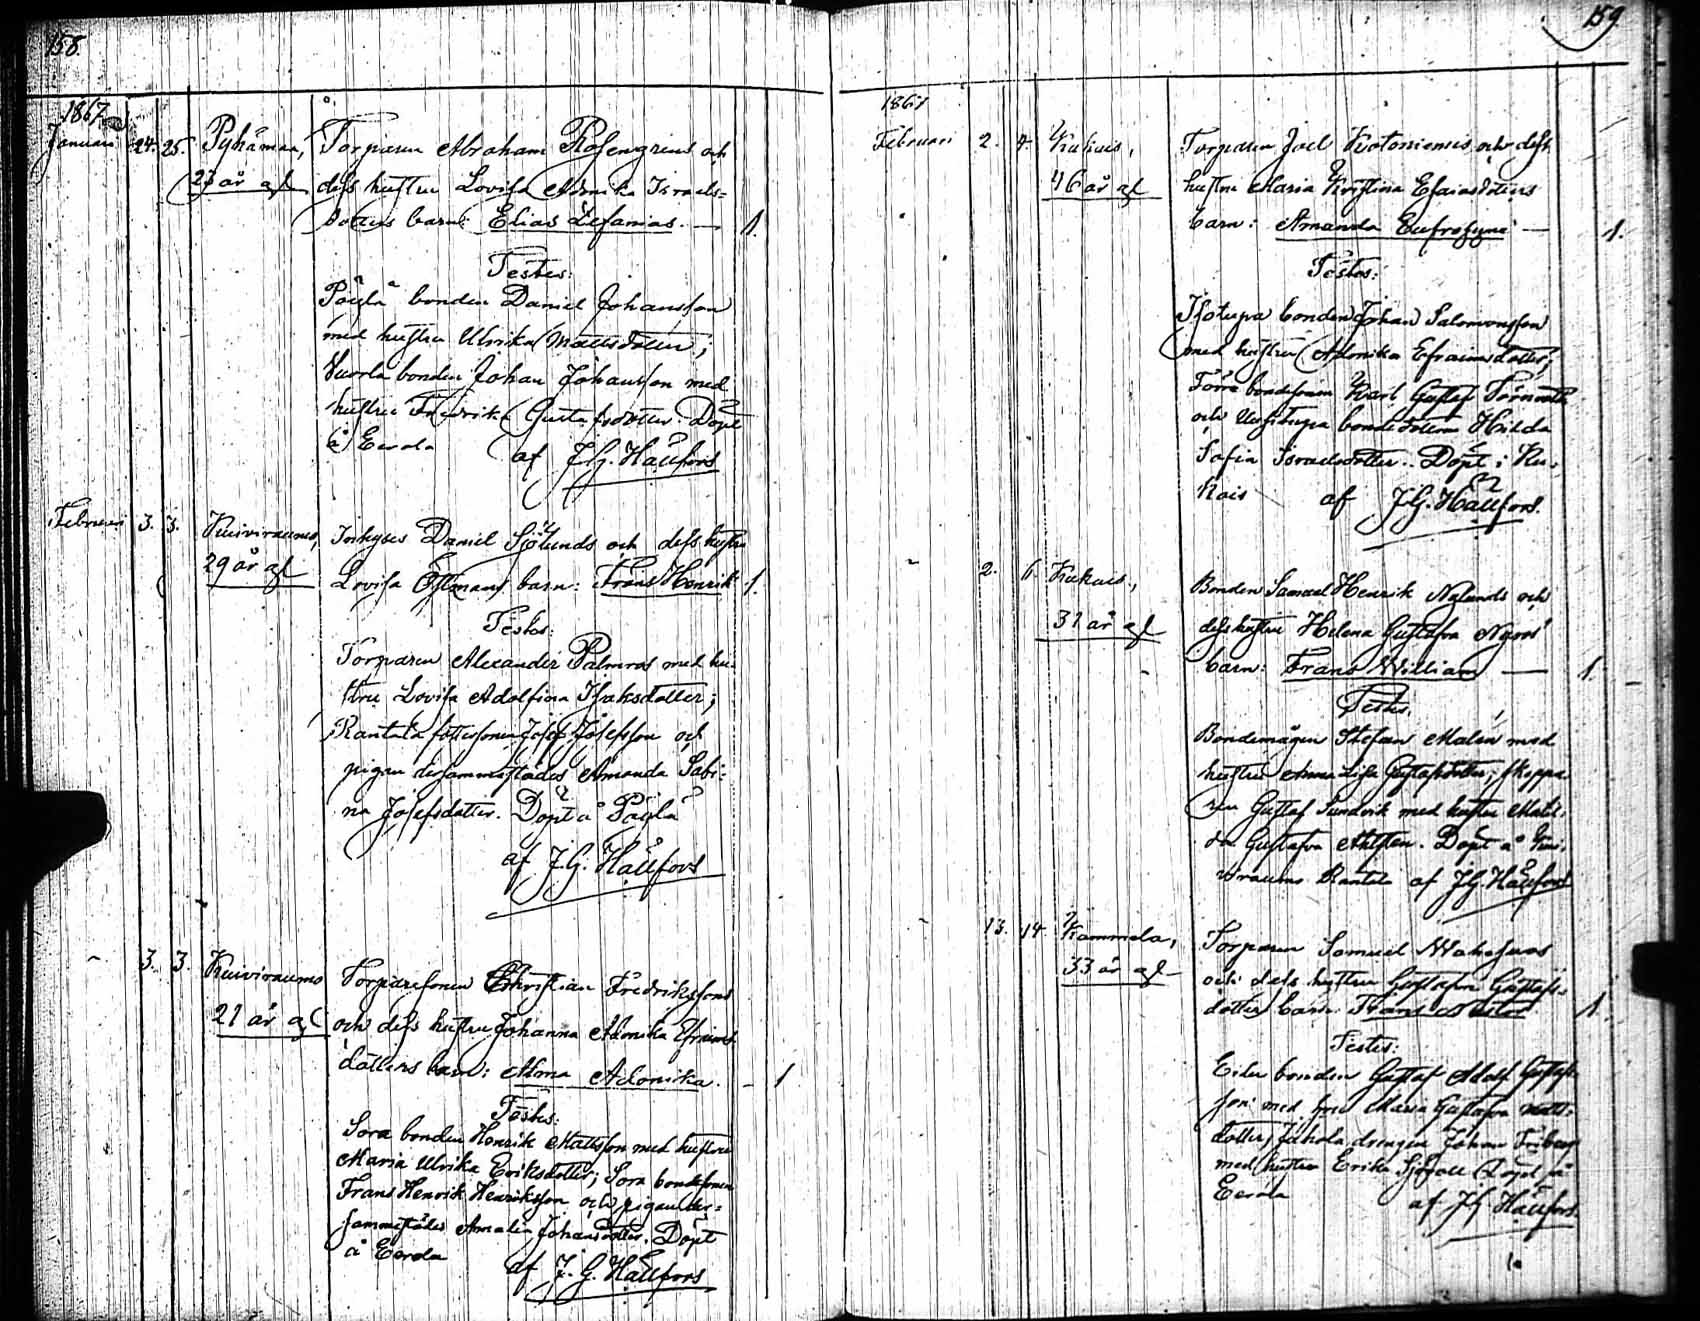 158.
1867
Januari 24. 25. Pyhämaa, Torparen Abraham Rosengrens och
23 år gl dess hustru Lovisa Adonika Israels=
dotters barn: Elias Zefanias. — 1.
Testes:
Pöylä bonden Daniel Johansson
med hustru Ulrika Mattsdotter;
Vuorla bonden Johan Johansson med
hustru Fredrika Gustafsdotter. Döpt
å Eerola af J.G. Hällfors
Februari 3. 3. Kuivirauma, Inhyses Daniel Sjölunds och dess hustru
29 år gl Lovisa Östmans barn: Frans Henrik 1.
Testes:
Torparen Alexander Palmros med hu=
stru Lovisa Adolfina Isaksdotter;
Rantala Josef Josefsson och
pigan dersammastädes Amanda Sabi=
na Josefsdotter. Döpt å Pöylä
af J.G. Hällfors
3. 3. Kuivirauma Torparesonen Christian Fredrikssons
21 år gl och dess hustru Johanna Adonika Efraims
dotters barn: Alma Adonika. — 1
Testes:
Sora bonden Henrik Mattsson med hustru
Maria Ulrika Eriksdotter; Sora bondesonen
Frans Henrik Henriksson och pigan der=
sammastädes Amalia Johansdotter. Döpt
å Eerola af J.G. Hällfors
159
1867
Februari 2. 4. Kukais, Torparen Joel Kotoniemis och dess
46 år gl hustru Maria Kristina Esaiasdotters
barn: Amanda Eufrosyne — 1.
Testes:
Isotupa bonden Johan Salomonsson
med hustru Adonika Efraimsdotter;
bondesonen Karl Gustaf
och bondedottern Hilda
Sofia Israelsdotter. Döpt i Ku=
kais af J.G. Hällfors.
2. 6. Kukais, Bonden Samuel Henrik Nylunds och
31 år gl dess hustru Helena Gustafva Nyroos
barn: Frans William — 1.
Testes.
Bondemågen Stefan Malén med
hustru Anna Lisa Gustafsdotter; skeppa=
ren Gustaf Sundvik med hustru Matil=
da Gustafva Ahlsten. Döpt å Kui=
virauma Rantala af J.G. Hällfors
13. 14. Kammela, Torparen Samuel Wahlroos
33 år gl och dess hustru Gustafva Gustafs=
dotters barn: Frans Nestor 1.
Testes:
Eilu bonden Gustaf Adolf Gustafs=
son med hru Maria Gustafva Matts=
dotter; drengen Johan Friberg
med hustru Erika Sjövall. Döpt å
Eerola af J.G. Hällfors.